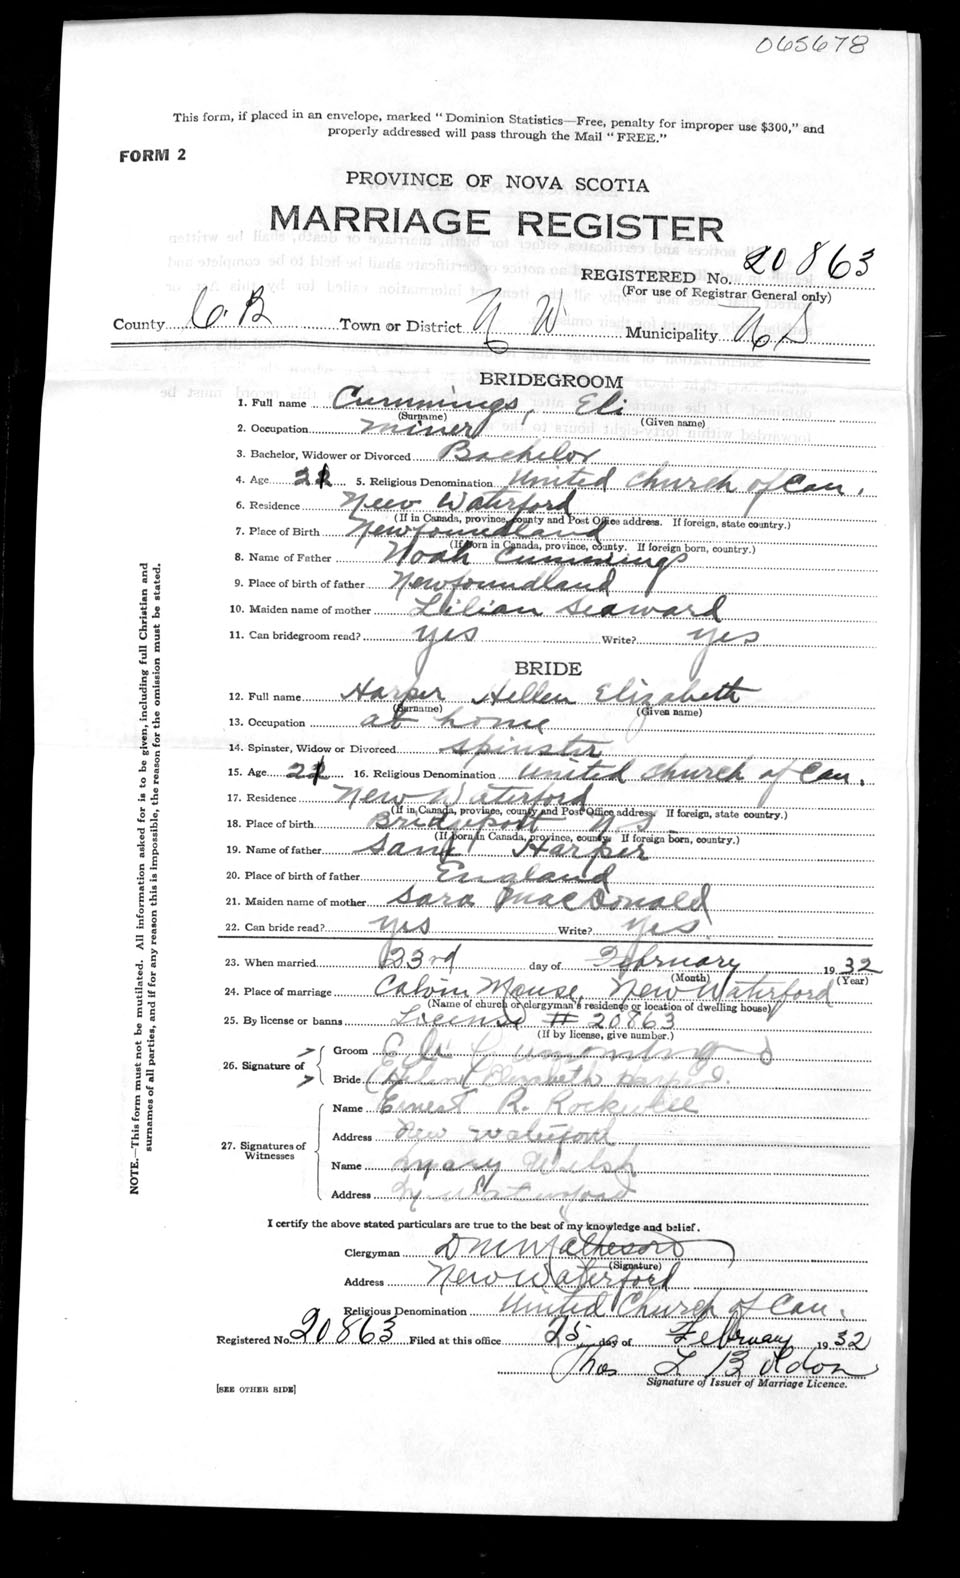 065678
This form, if placed in an envelope, marked "Dominion Statistics—Free, penalty for improper use $300," and
properly addressed will pass through the Mail "FREE."
FORM 2
PROVINCE OF NOVA SCOTIA
MARRIAGE REGISTER
REGISTERED No. 20863
(For use of Registrar General only)
County C. B Town or District N W Municipality N S
BRIDEGROOM
1. Full name Cummings, Eli
(Surname) (Given name)
2. Occupation miner
3. Bachelor, Widower or Divorced Bachelor
4. Age 21 5. Religious Denomination United Church of Can.
6. Residence New Waterford
(If in Canada, province, county and Post Office address. If foreign, state country.)
7. Place of Birth Newfoundland
(If born in Canada, province, county. If foreign born, country.)
8. Name of Father Noah Cummings
9. Place of birth of father Newfoundland
10. Maiden name of mother Lilian Seaward
11. Can bridegroom read? yes Write? yes
BRIDE
12. Full name Harper Hellen Elizabeth
(Surname) (Given name)
13. Occupation at home
14. Spinster, Widow or Divorced spinster
15. Age 21 16. Religious Denomination United Church of Can.
17. Residence New Waterford
(If in Canada, province, county and Post Office address. If foreign, state country.)
18. Place of birth Bridgeport N.S.
(If born in Canada, province, county. If foreign born, country.)
19. Name of father Sam Harper
20. Place of birth of father England
21. Maiden name of mother Sara MacDonald
22. Can bride read? yes Write? yes
23. When married 23rd day of February 1932
(Month) (Year)
24. Place of marriage Calvin Manse, New Waterford
(Name of church or clergyman's residence or location of dwelling house)
25. By license or banns License # 20863
(If by license, give number.)
26. Signature of
Groom Eli Cummings
Bride Helen Elizabeth Harper.
27. Signatures of Witnesses
Name Ernest R. Rockwell
Address New Waterford
Name Mary Welsh
Address New Waterford
I certify the above stated particulars are true to the best of my knowledge and belief.
Clergyman D M Matheson
(Signature)
Address New Waterford
Religious Denomination United Church of Can.
Registered No. 20863 Filed at this office 25 day of February 1932
Thos L Boldon
Signature of Issuer of Marriage Licence.
[SEE OTHER SIDE]
NOTE.—This form must not be mutilated. All information asked for is to be given, including full Christian and
surnames of all parties, and if for any reason this is impossible, the reason for the omission must be stated.